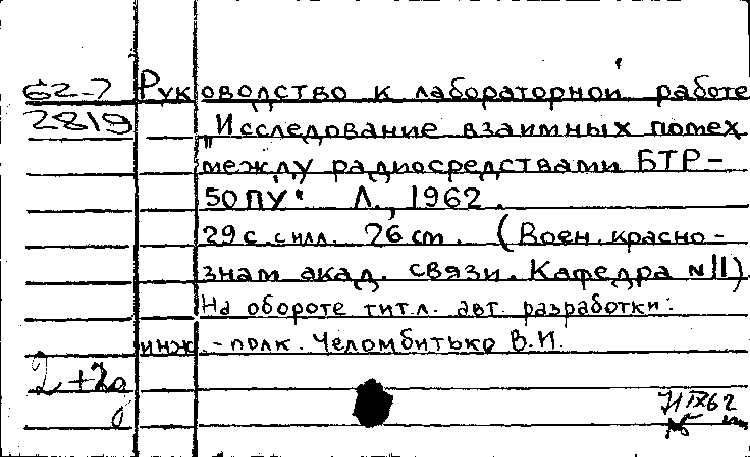 62-7 Руководство к лабораторной работе
2819 „Исследование взаимных помех
между радиосредствами БТР-
50ПУ" Л., 1962.
29 с. с илл. 26 cm. (Воен. красно-
знам акад. связи. Кафедра №11)
На обороте титл. авт. разработки:
инж.-полк. Челомбитько В.И.
2+2д
IX 62